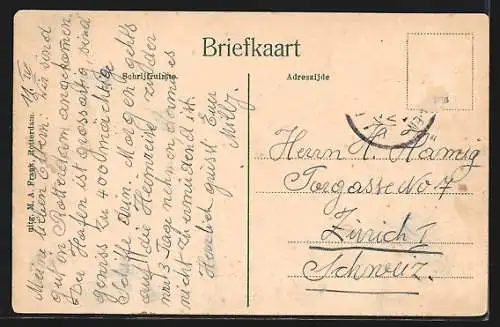 Briefkaart
Schrijfruimte.
Adreszijde
uitg. M. A. Frank, Rotterdam.
Meine lieben Eltern! Wir sind
gut in Rotterdam angekommen.
Der Hafen ist grossartig, sind
gewiss zu 4000 mächtige
Schiffe drin. Morgen gehts
auf die Heimreise, wieder
3 Tage nehmen damit es
nicht zu ermüdend ist.
Herzlich grüsst Euer
Willy.
Herrn H. Hämig
Torgasse No 7
Zürich I
Schweiz.